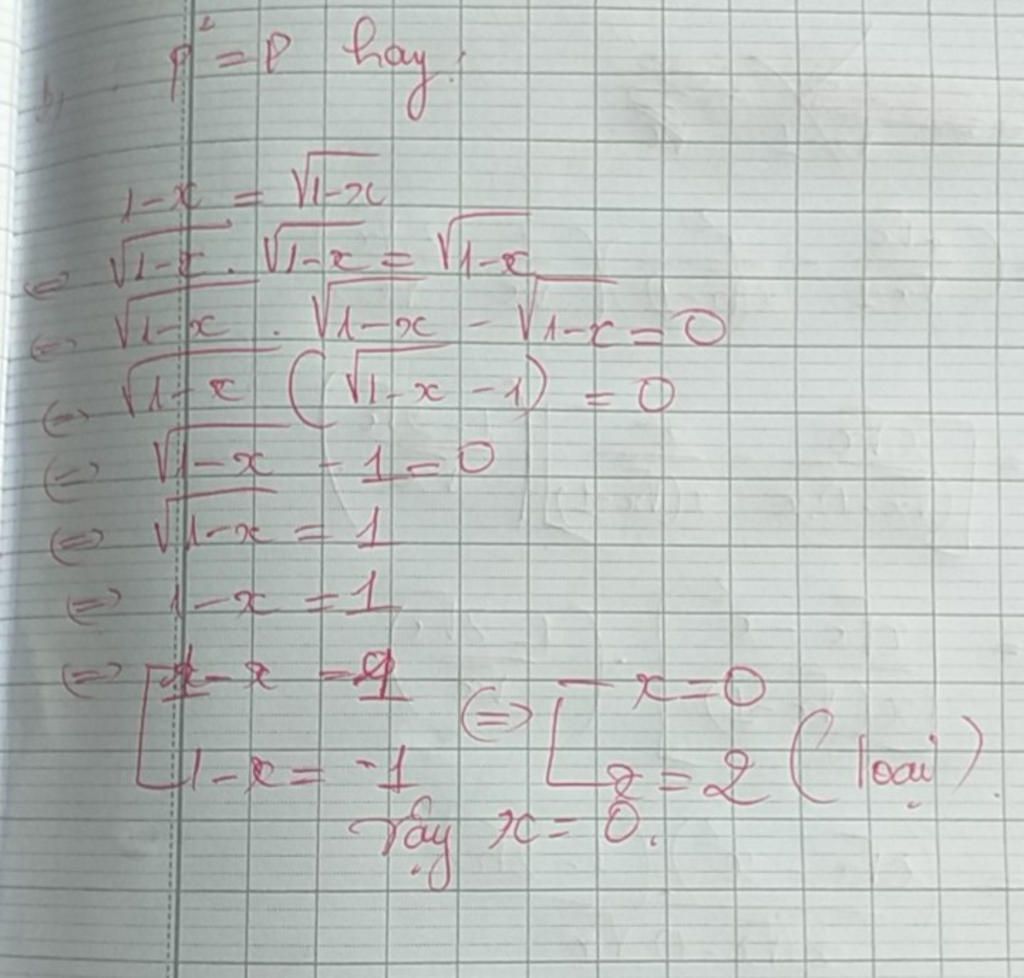 p² = P hay.
b,
1-x = √1-x
⇔ √1-x . √1-x = √1-x
⇔ √1-x . √1-x - √1-x = 0
⇔ √1-x (√1-x - 1) = 0
⇔ √1-x - 1 = 0
⇔ √1-x = 1
⇔ 1-x = 1
⇔ [ 1-x = 1 ⇔ [ -x = 0
1-x = -1 x = 2 (loại).
vậy x = 0.